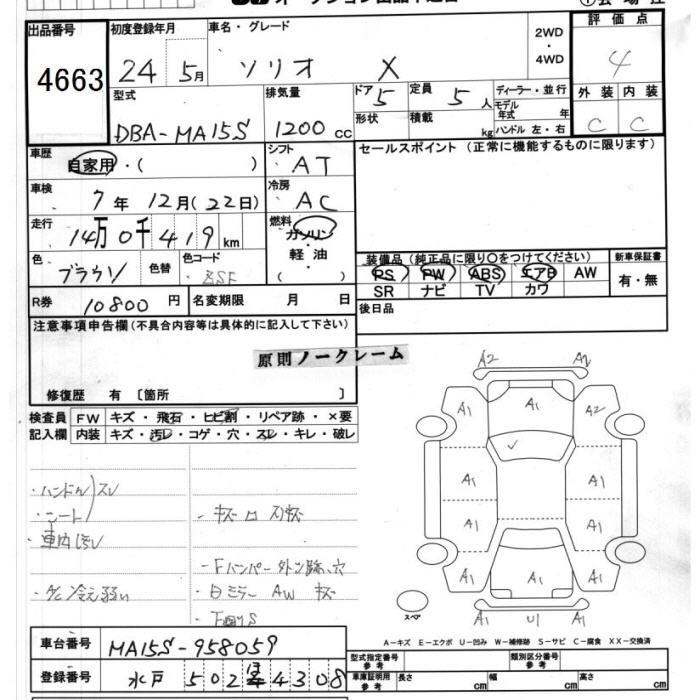 出品番号
4663
初度登録年月
24 5月
車名・グレード
ソリオ X
2WD
・
4WD
評価点
4
外装 内装
C C
型式
DBA-MA15S
排気量
1200 cc
ドア 5
形状
定員 5 人
積載 kg
ディーラー・並行
モデル年式 年
ハンドル 左・右
車歴
自家用・( )
シフト
AT
セールスポイント (正常に機能するものに限ります)
車検
7年 12月(22日)
冷房
AC
走行
14万0千419km
燃料
ガソリン
軽油
( )
色
ブラウン
色替
色コード
装備品 (純正品に限り〇をつけてください)
PS PW ABS エアB AW
SR ナビ TV カワ
新車保証書
有・無
R券
10800 円
名変期限 月 日
後日品
注意事項申告欄(不具合内容等は具体的に記入して下さい)
原則ノークレーム
修復歴 有 〔箇所 〕
検査員記入欄
FW キズ・飛石・ヒビ割・リペア跡・×要
内装 キズ・汚レ・コゲ・穴・スレ・キレ・破レ
・ハンドル スレ
・シート
・車内汚レ
・A/C 冷え弱い
A2 A2
A1 A1 A2
A1 A1
A1 A1
A1 A1 A1
A1 U1 A1
スペア
A-キズ E-エクボ U-凹み W-補修跡 S-サビ C-腐食 XX-交換済
車台番号
MA15S-958059
登録番号
水戸 502 4308
型式指定番号
参考
類別区分番号
参考
車庫証明用
参考
長さ cm
幅 cm
高さ cm